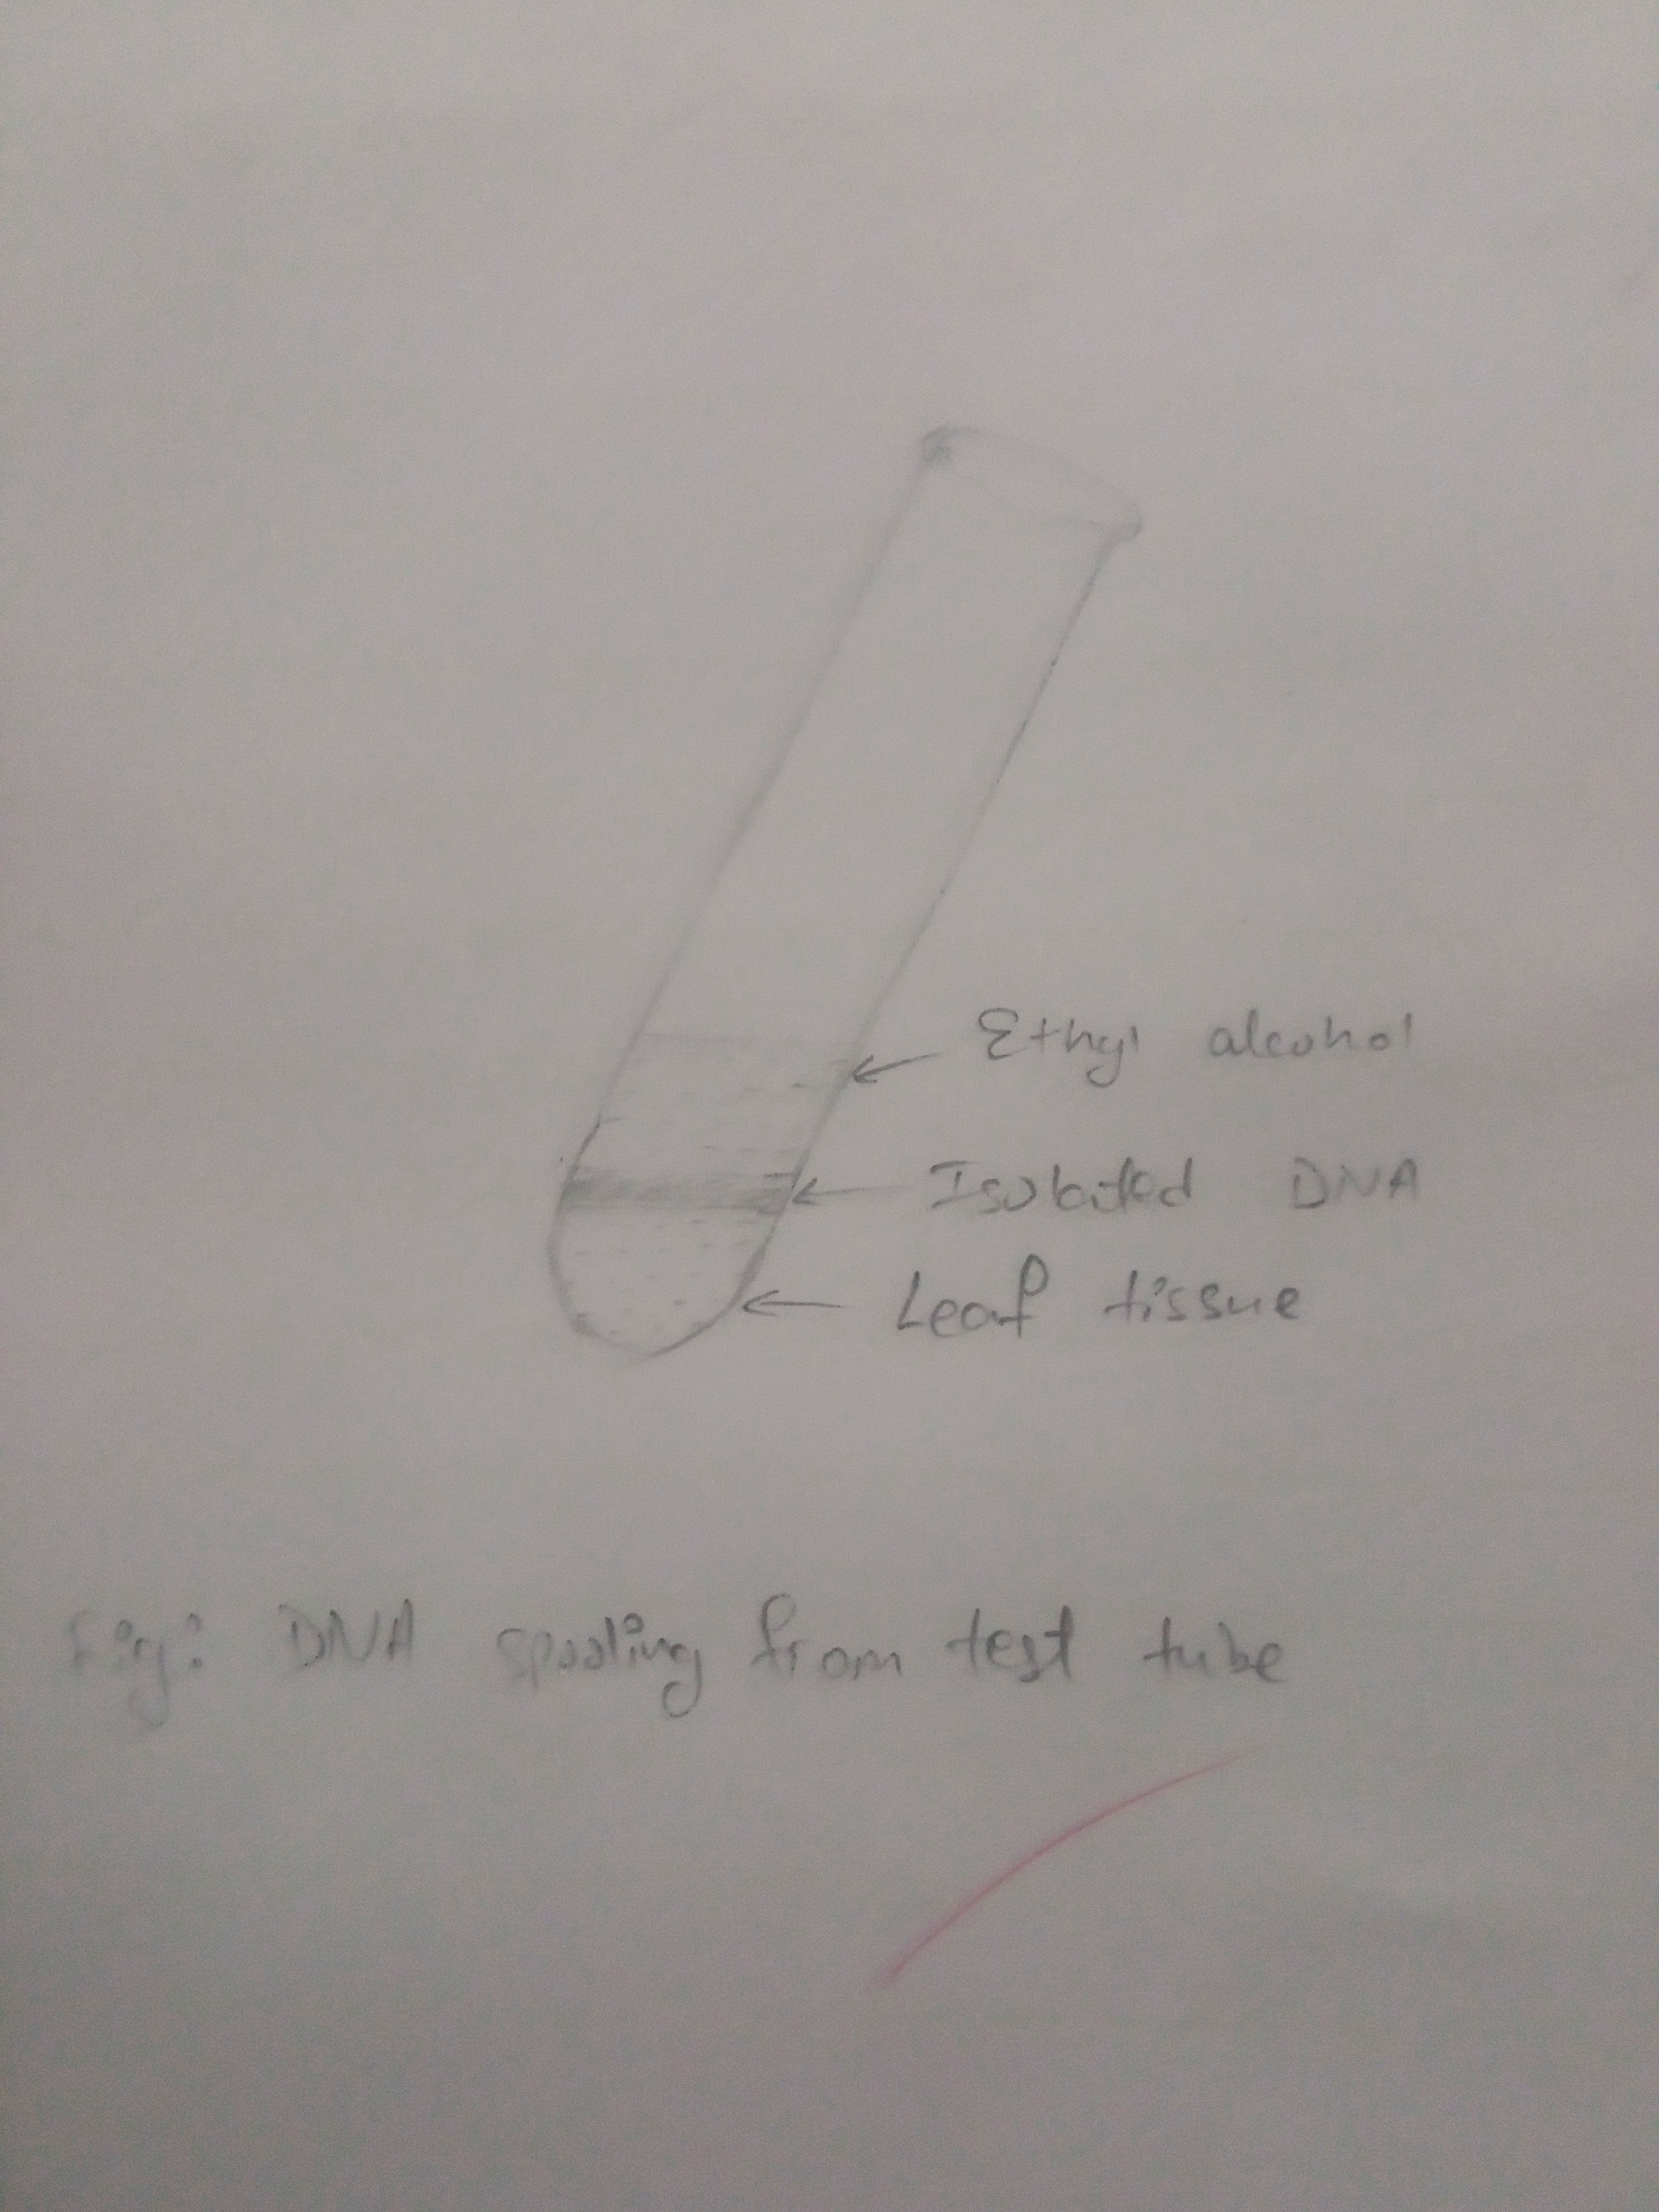 Ethyl alcohol
Isolated DNA
Leaf tissue
Fig: DNA spooling from test tube